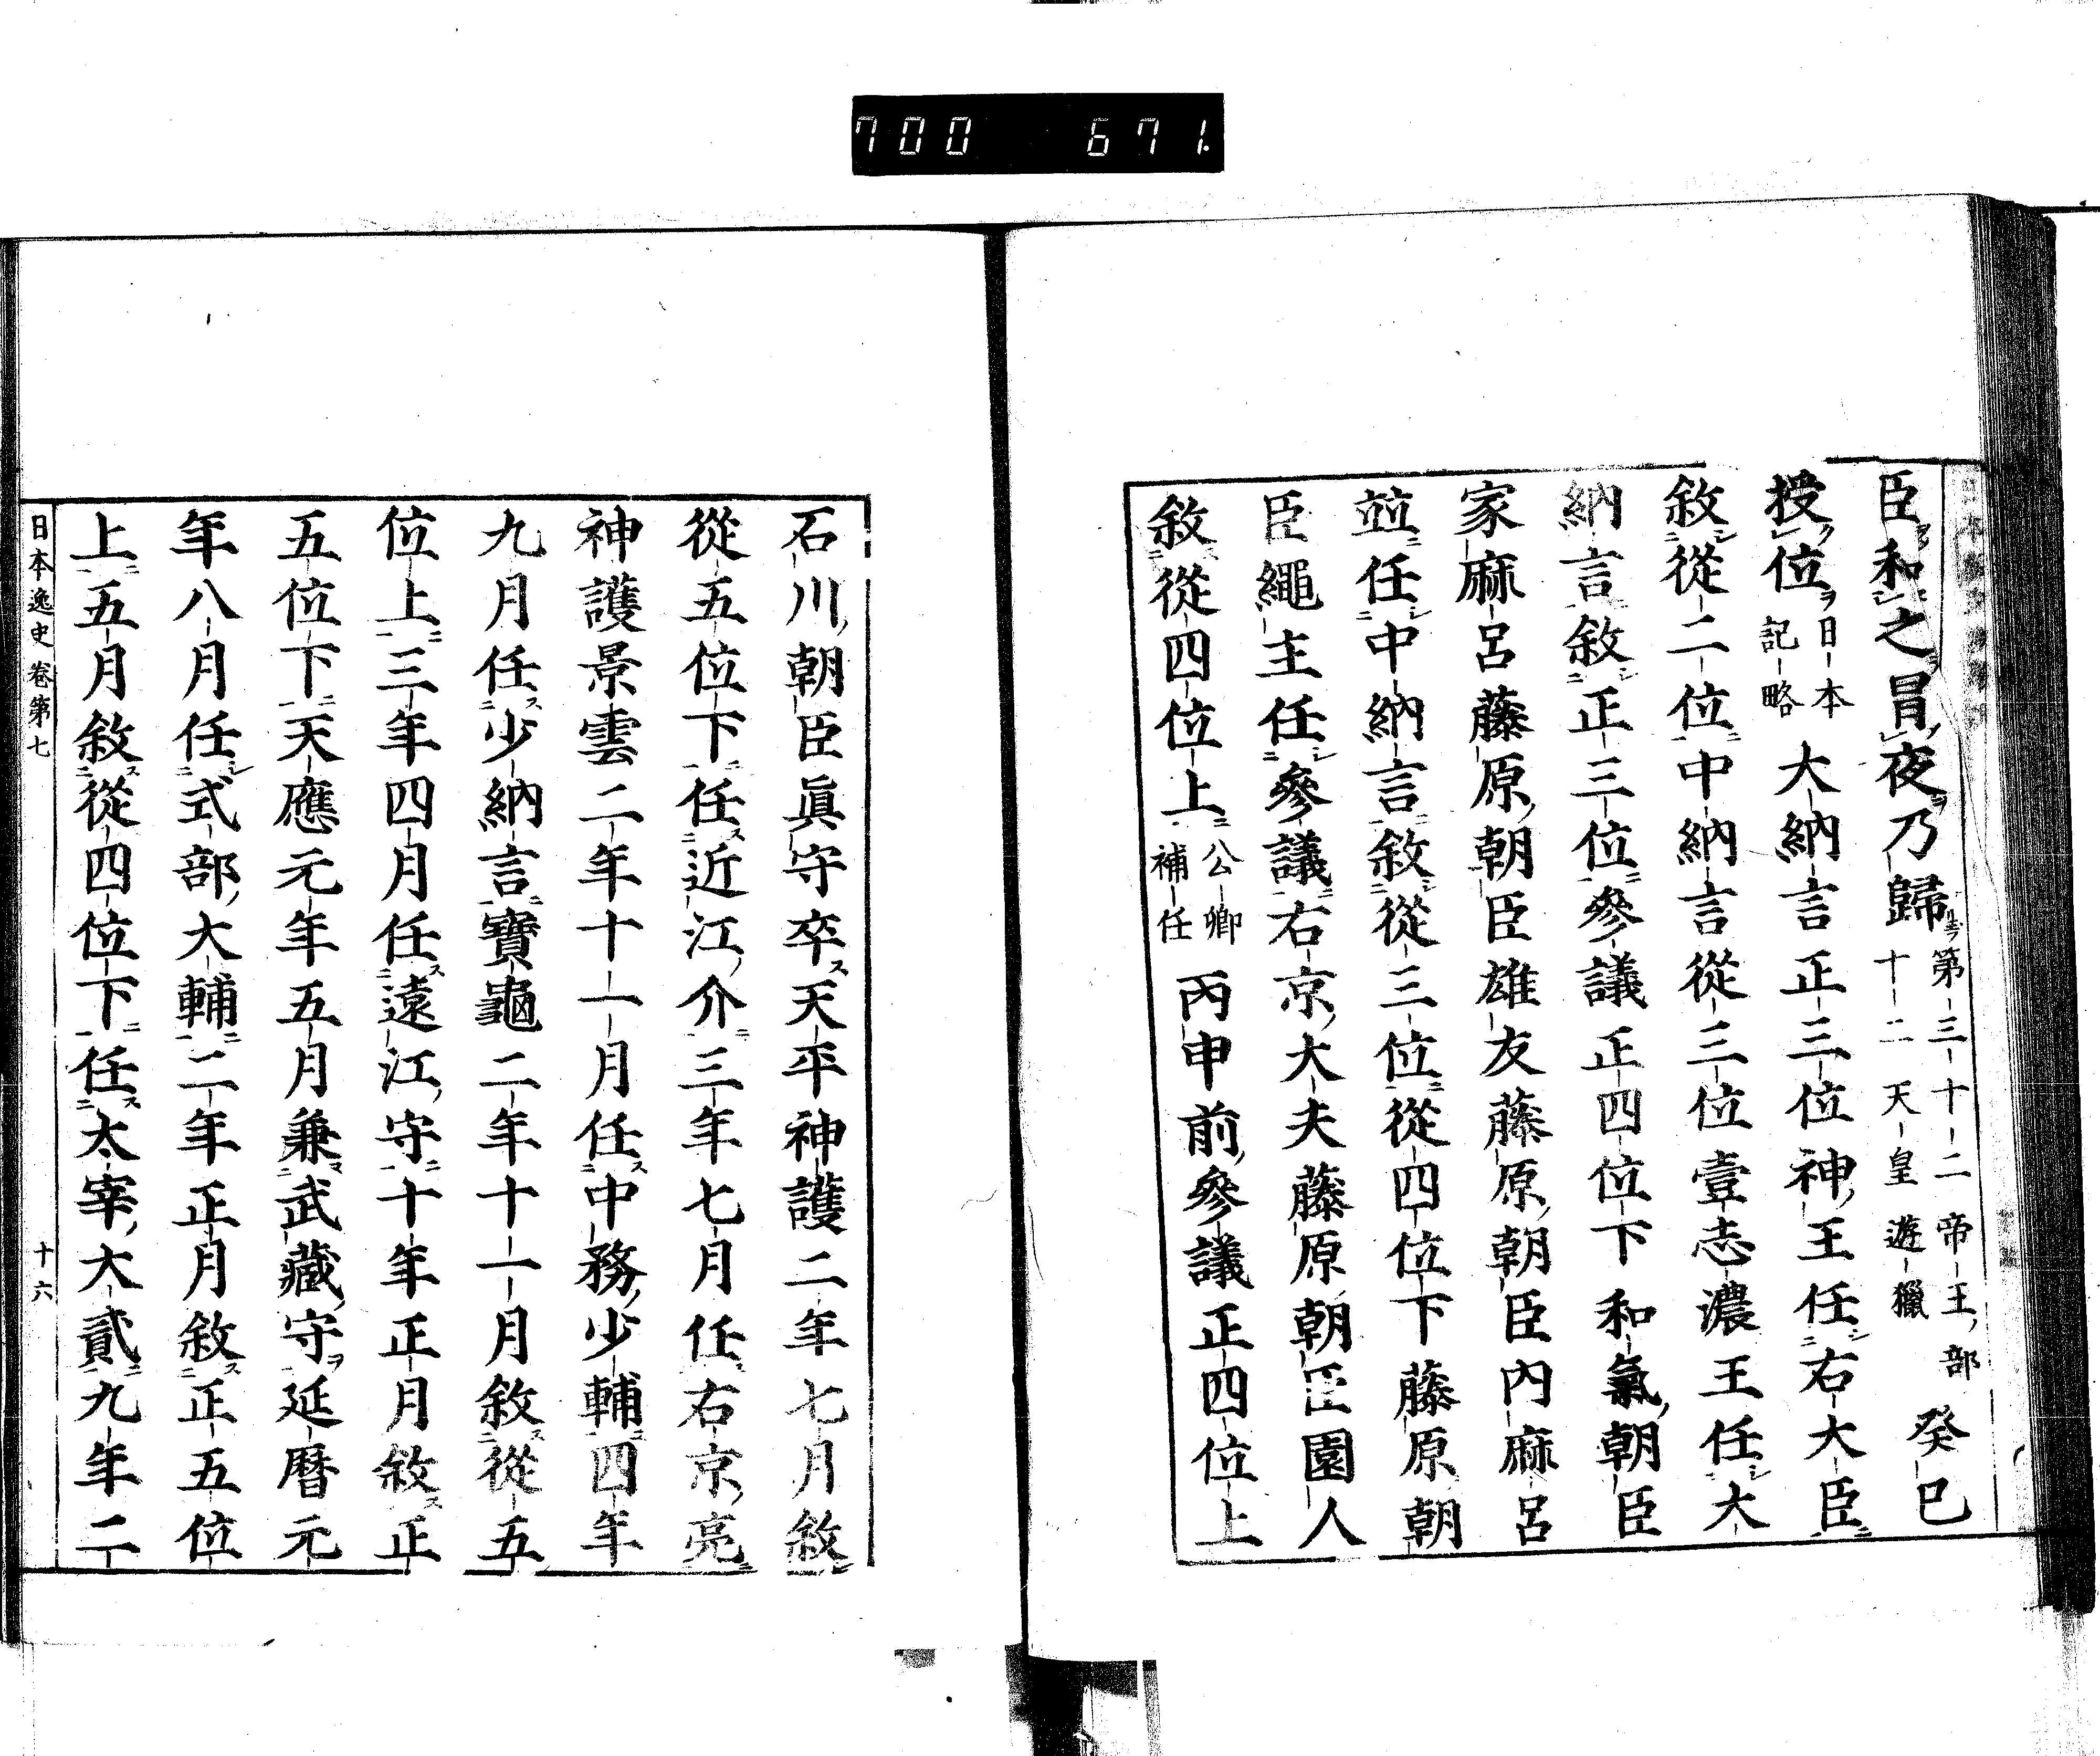 700 671.
臣和之冒夜乃歸第三十二帝王部十二天皇遊獵癸巳
授位日本記略大納言正三位神王任右大臣
敘從二位中納言從三位壹志濃王任大
納言敘正三位參議正四位下和氣朝臣
家麻呂藤原朝臣雄友藤原朝臣內麻呂
竝任中納言敘從三位從四位下藤原朝
臣繩主任參議右京大夫藤原朝臣園人
敘從四位上公卿補任丙申前參議正四位上
石川朝臣眞守卒天平神護二年七月敘
從五位下任近江介三年七月任右京亮
神護景雲二年十一月任中務少輔四年
九月任少納言寶龜二年十一月敘從五
位上三年四月任遠江守十年正月敘正
五位下天應元年五月兼武藏守延曆元
年八月任式部大輔二年正月敘正五位
上五月敘從四位下任太宰大貳九年二
日本逸史卷第七 十六